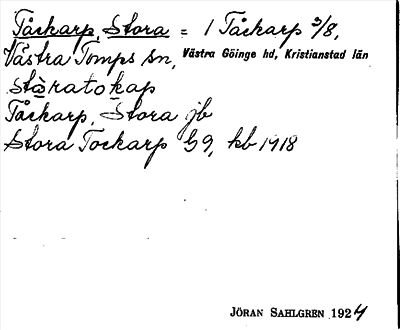 Tåckarp, Stora = 1 Tåckarp 3/8,
Västra Tomps sn, Västra Göinge hd, Kristianstad län
stòratokap
Tåckarp, Stora jb
Stora Tockarp G9, kb 1918
JÖRAN SAHLGREN 1924